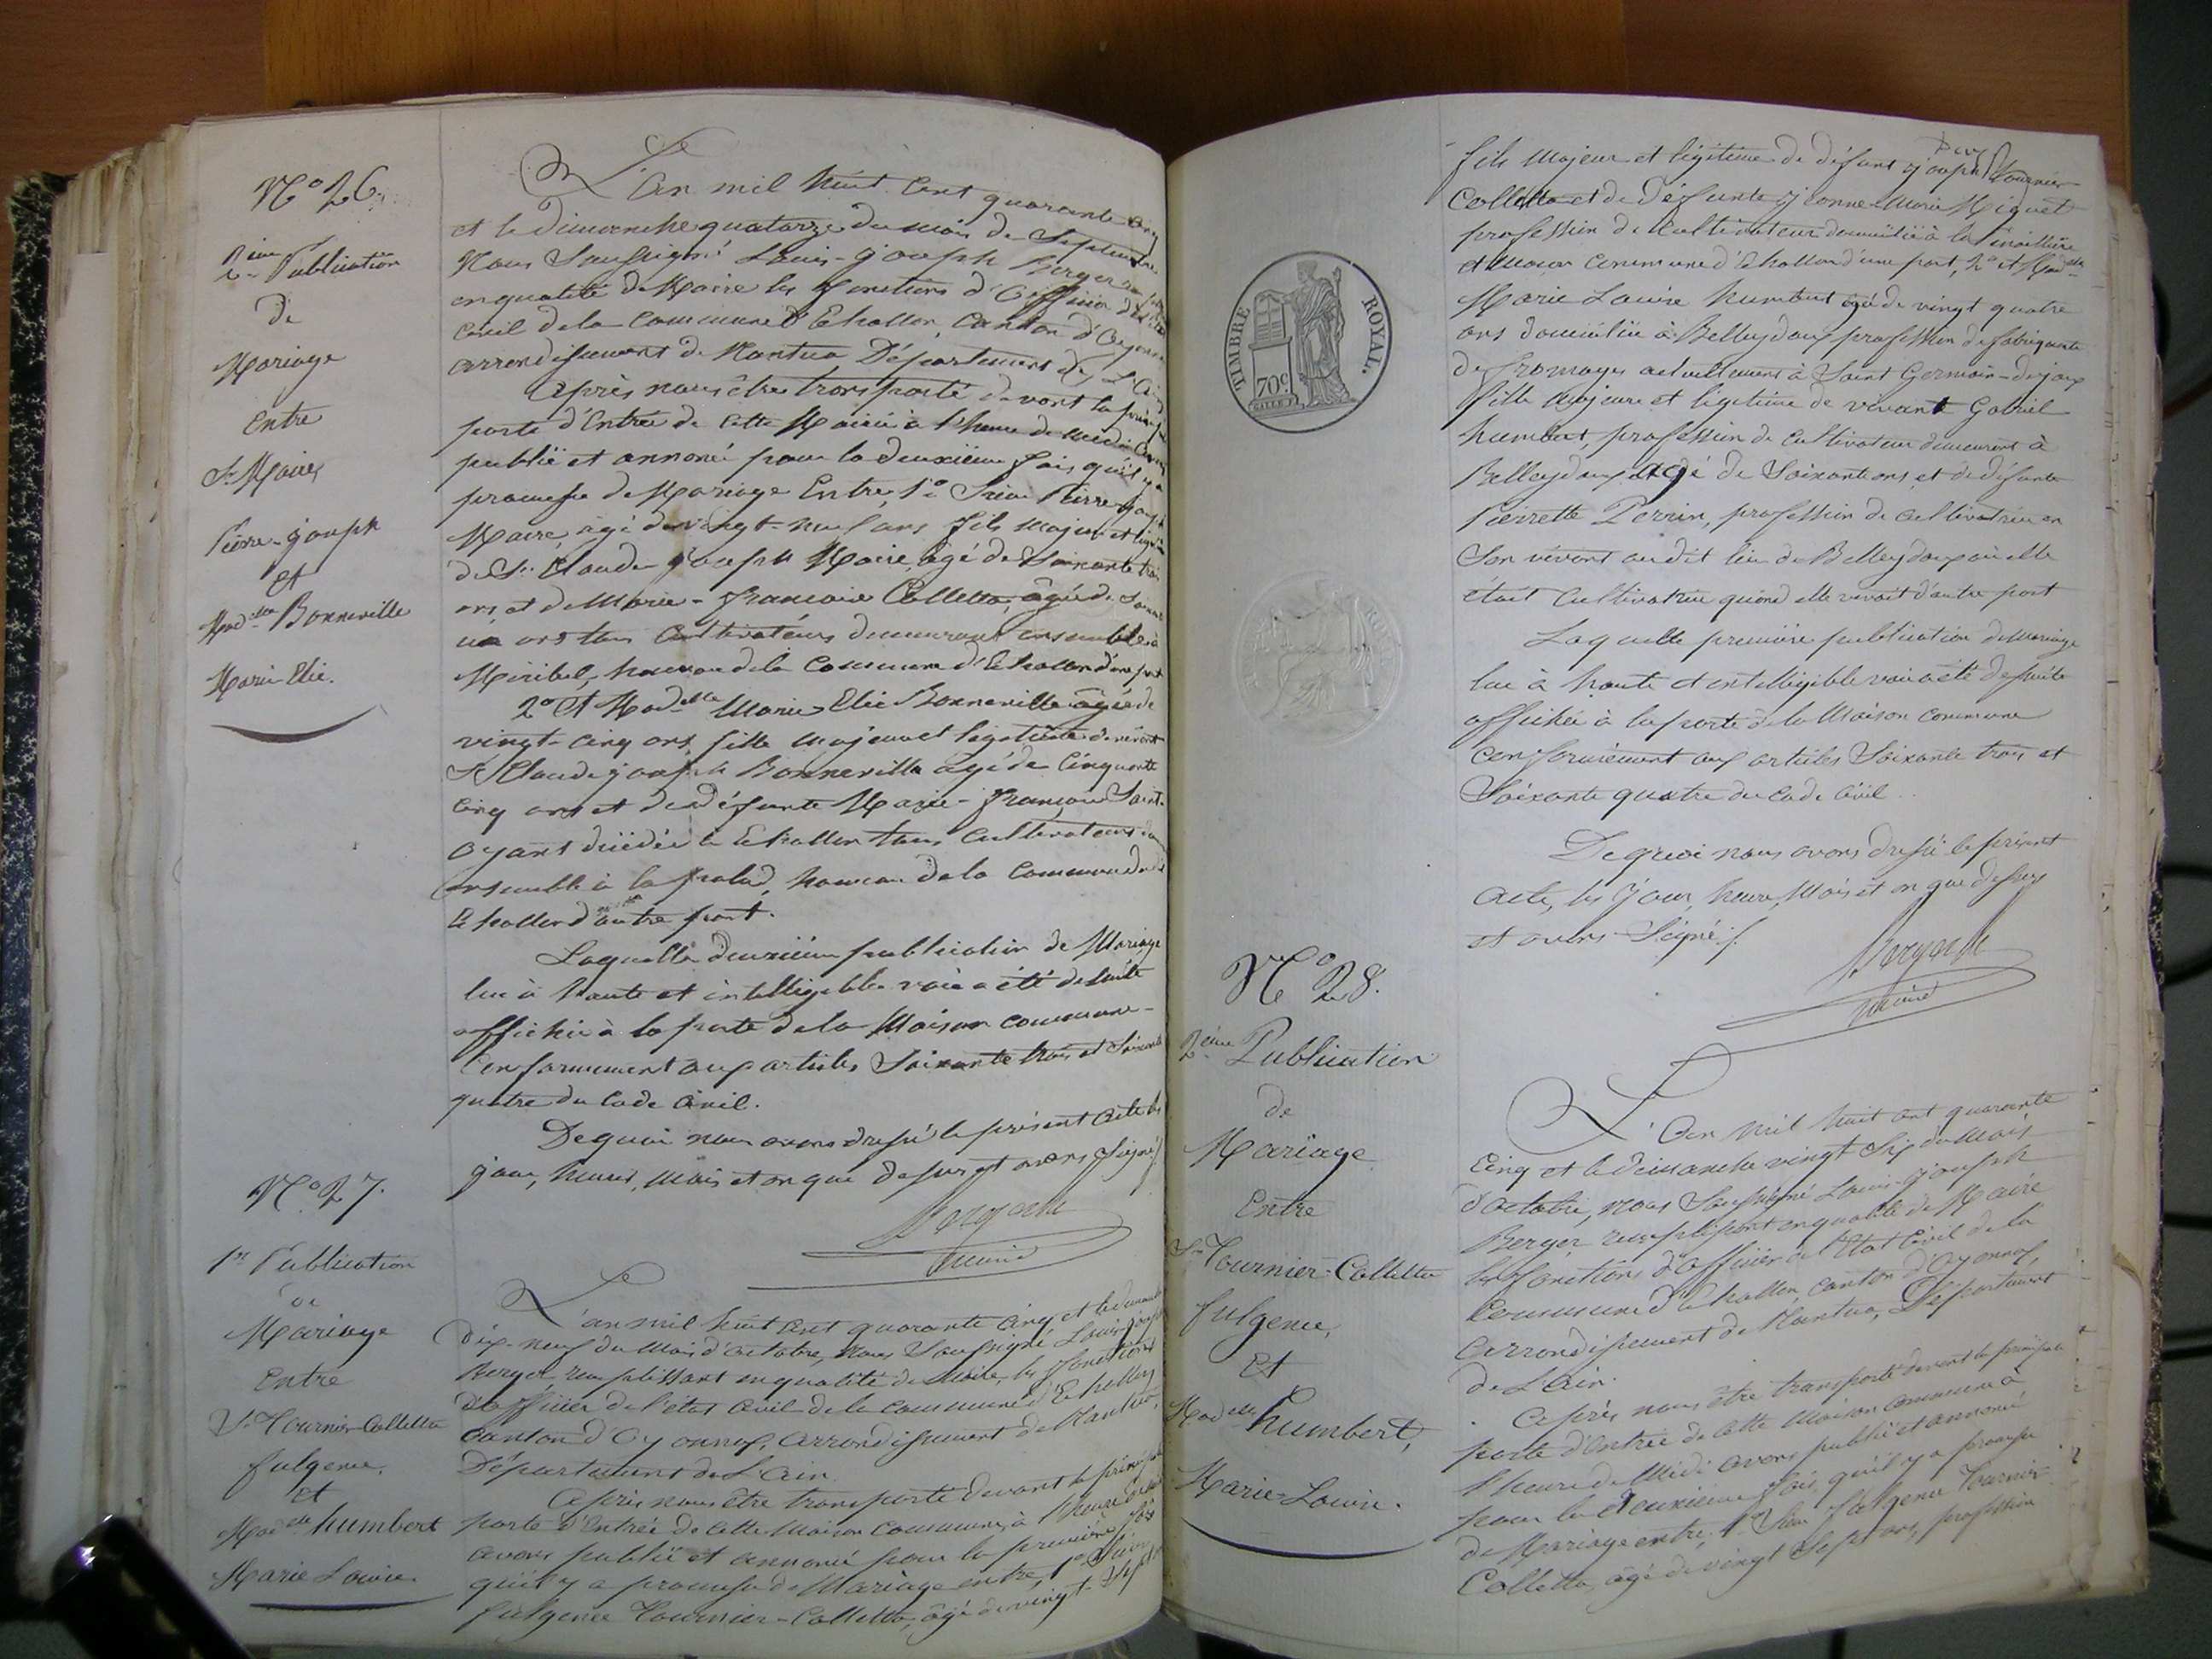 N° 26.
2ième Publication
de
Mariage
Entre
Sr Maire
Pierre-Joseph
Et
Madelle Bonneville
Marie Elie.
L'an mil huit cent quarante cinq
et le dimanche quatorze du mois de Septembre
Nous Soussigné Louis-Joseph Berger
en qualité de Maire les fonctions d'Officier de l'Etat
Civil de la Commune d'Echallon, Canton d'Oyonnax
arrondissement de Nantua Département de L'Ain
Après nous être transporté devant la principale
porte d'Entrée de cette Mairie à l'heure de midi avons
publié et annoncé pour la deuxième fois qu'il y a
promesse de Mariage Entre, 1° Sieur Pierre Joseph
Maire, âgé de vingt-neuf ans fils majeur et légitime
de Sr Claude Joseph Maire, âgé de Soixante trois
ans et de Marie-Françoise Colletta, âgée de Soixante
un ans tous Cultivateurs demeurant ensemble à
Miribel, hameau de la Commune d'Echallon d'une part
2° Et Madelle Marie Elie Bonneville âgée de
vingt-cinq ans fille majeure et légitime de vivant
Sr Claude Joseph Bonneville âgé de Cinquante
cinq ans et de défunte Marie-Françoise Saint-
Oyant décédée à Echallon tous Cultivateurs
ensemble à la palud, hameau de la Commune
Echallon d'autre part.
Laquelle deuxième publication de Mariage
lue à haute et intelligible voix a été desuite
affichée à la porte de la Maison commune
Conformément aux articles Soixante trois et Soixante
quatre du Code Civil.
De quoi nous avons dressé le présent acte les
jour, heure, mois et an que dessus et avons Signé ./.
Berger
maire
N° 27.
1re Publication
de
Mariage
Entre
Sr Tournier-Colletta
fulgence,
Et
Madelle humbert
Marie Louise.
L'an mil huit cent quarante cinq et le dimanche
dix-neuf du Mois d'octobre, Nous Soussigné Louis-Joseph
Berger remplissant en qualité de Maire, les fonctions
d'officier de l'état Civil de la Commune d'Echallon
canton d'Oyonnax, arrondissement de Nantua,
Département de L'Ain.
Après nous être transporté devant la principale
porte d'Entrée de cette Maison commune, à l'heure de midi
avons publié et annoncé pour la première fois
qu'il y a promesse de Mariage entre, 1° Sieur
fulgence Tournier-Colletta, âgé de vingt-Sept
fils Majeur et légitime de défunt Joseph Tournier
Colletta et de Défunte Jeanne-Marie Miguet
profession de Cultivateur domicilié à
commune d'Echallon d'une part, 2° et Madelle
Marie Louise humbert âgée de vingt quatre
ans domiciliée à Belleydoux profession de fabriquante
de fromages actuellement à Saint Germain-de-joux
fille Majeure et légitime de vivant Gabriel
humbert, profession de Cultivateur demeurant à
Belleydoux, âgé de Soixante ans et de défunte
Pierrette Perrin, profession de Cultivatrice en
Son vivant au dit lieu de Belleydoux où elle
était Cultivatrice quand elle vivait d'autre part
Laquelle première publication de Mariage
lue à haute et intelligible voix a été desuite
affichée à la porte de la Maison commune
Conformément aux articles Soixante trois et
Soixante quatre du Code Civil.
De quoi nous avons dressé le présent
acte, les jour, heure, Mois et an que dessus
et avons Signé ./.
Berger
maire
TIMBRE ROYAL.
70c
N° 28.
2ième Publication
de
Mariage
Entre
Sr Tournier-Colletta
fulgence,
Et
Madelle humbert,
Marie-Louise.
L'an Mil huit cent quarante
cinq et le dimanche vingt Six du Mois
d'octobre, nous Soussigné Louis-Joseph
Berger remplissant en qualité de Maire
les fonctions d'officier de l'Etat Civil de la
Commune d'Echallon, canton d'Oyonnax,
arrondissement de Nantua, Département
de L'Ain.
Après nous être transporté devant la principale
porte d'Entrée de cette Maison commune à
l'heure de Midi avons publié et annoncé
pour la deuxième fois, qu'il y a promesse
de Mariage entre, 1° Sieur fulgence Tournier
Colletta, âgé de vingt Sept ans, profession